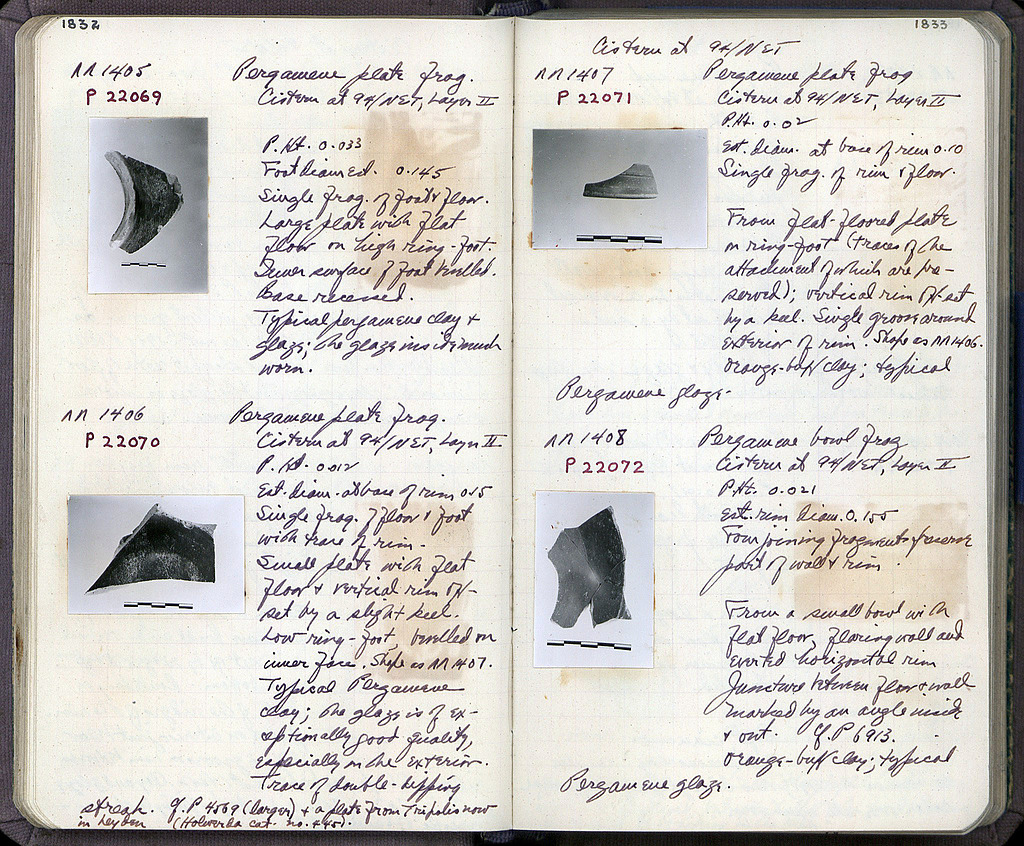 1832
ΛΛ 1405
P 22069
Pergamene plate frag.
Cistern at 94/NET, Layer II
P.Ht. 0.033
Foot diam est. 0.145
Single frag. of foot & floor.
Large plate with flat
floor on high ring-foot.
Inner surface of foot bevelled.
Base recessed.
Typical pergamene clay +
glaze; the glaze inside much
worn.
ΛΛ 1406
P 22070
Pergamene plate frag.
Cistern at 94/NET, Layer II
P. Ht. 0.012
Est. diam. at base of rim 0.15
Single frag. of floor & foot
with trace of rim.
Small plate with flat
floor & vertical rim off-
set by a slight keel.
Low ring-foot, bevelled on
inner face. Shape as ΛΛ 1407.
Typical Pergamene
clay; the glaze is of ex-
eptionally good quality,
especially on the exterior.
Trace of double-dipping
streak. Cf. P 4569 (larger) + a plate from Tripolis now
in Leyden (Holwerda cat. no. 445).
1833
Cistern at 94/NET
ΛΛ 1407
P 22071
Pergamene plate frag
Cistern at 94/NET, Layer II
P.Ht. 0.02
Est. diam. at base of rim 0.10
Single frag. of rim & floor.
From flat-floored plate
on ring-foot (traces of the
attachment of which are pre-
served); vertical rim off-set
by a keel. Single groove around
exterior of rim. Shape as ΛΛ 1406.
Orange-buff clay; typical
Pergamene glaze.
ΛΛ 1408
P 22072
Pergamene bowl frag
Cistern at 94/NET, Layer II
P.Ht. 0.021
Est. rim diam. 0.155
Four joining fragments preserve
part of wall & rim.
From a small bowl with
flat floor, flaring wall and
everted horizontal rim
Juncture between floor & wall
marked by an angle inside
& out. Cf. P 6913.
Orange-buff clay; typical
Pergamene glaze.